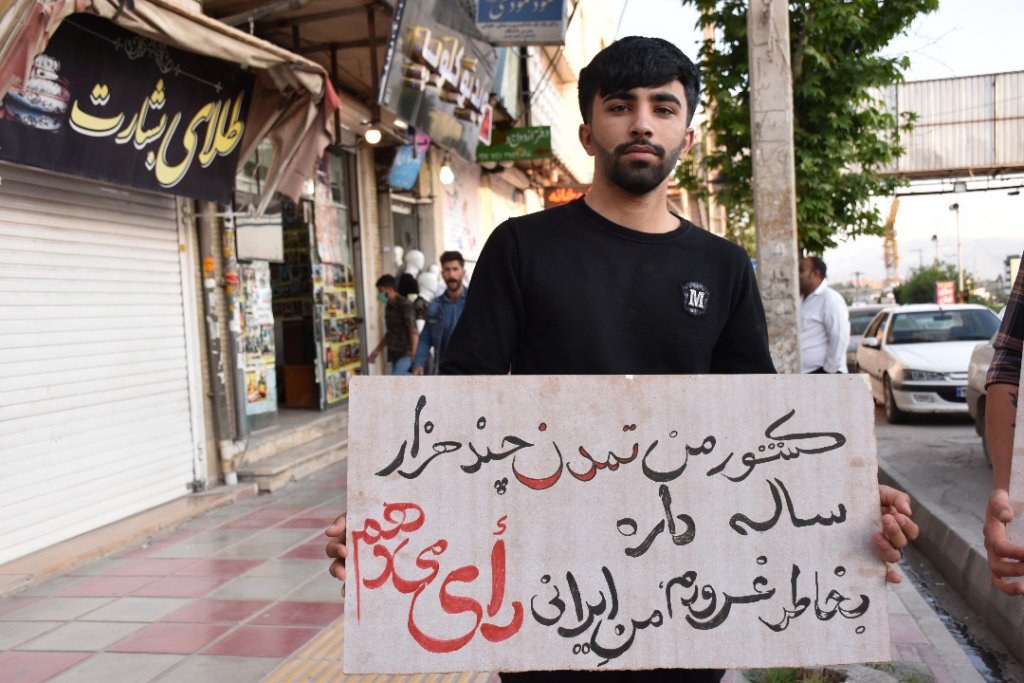 طلای بشارت
کشور من تمدن چند هزار
ساله داره
بخاطر غرورم من ایرانی
رأی میدهم
M